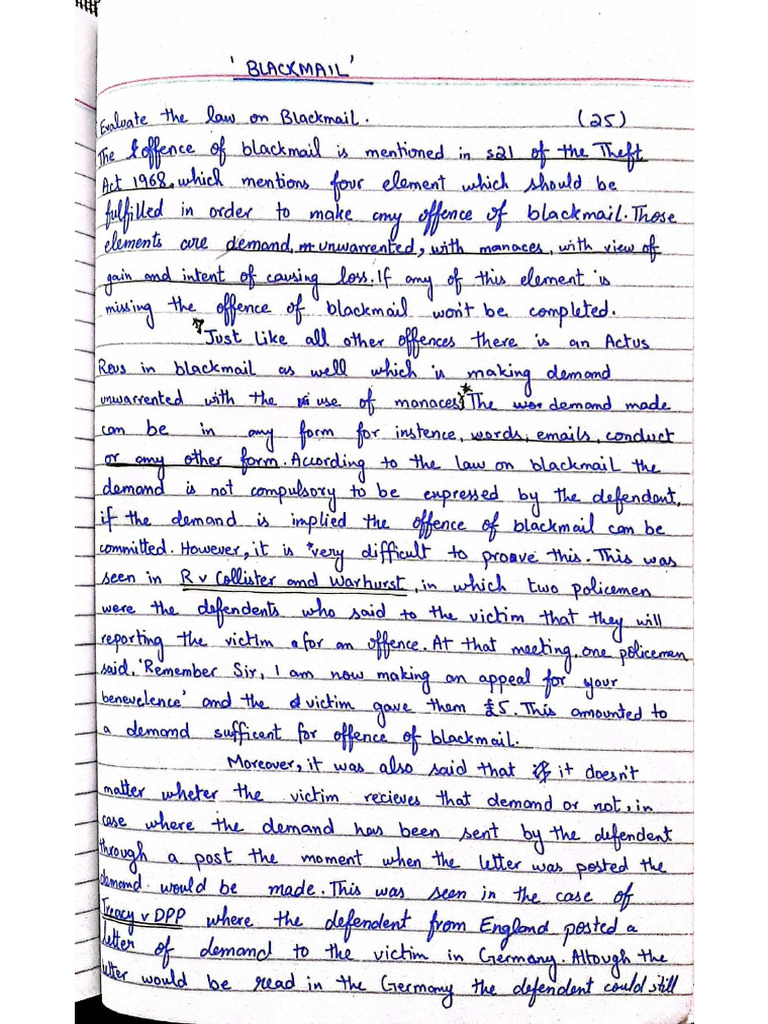 ' BLACKMAIL '
Evaluate the law on Blackmail. (25)
The offence of blackmail is mentioned in s21 of the Theft
Act 1968, which mentions four element which should be
fulfilled in order to make any offence of blackmail. Those
elements are demand, unwarrented, with manaces, with view of
gain and intent of causing loss. If any of this element is
missing the offence of blackmail won't be completed.
Just like all other offences there is an Actus
Reus in blackmail as well which is making demand
unwarrented with the use of manaces. The demand made
can be in any form for instence, words, emails, conduct
or any other form. According to the law on blackmail the
demand is not compulsory to be expressed by the defendent,
if the demand is implied the offence of blackmail can be
committed. However, it is very difficult to proave this. This was
seen in R v Collister and Warhurst, in which two policemen
were the defendents who said to the victim that they will
reporting the victim for an offence. At that meeting, one policemen
said, 'Remember Sir, I am now making an appeal for your
benevelence' and the victim gave them £5. This amounted to
a demand sufficent for offence of blackmail.
Moreover, it was also said that it doesn't
matter wheter the victim recieves that demand or not, in
case where the demand has been sent by the defendent
through a post the moment when the letter was posted the
demand would be made. This was seen in the case of
Treacy v DPP where the defendent from England posted a
letter of demand to the victim in Germany. Altough the
letter would be read in the Germany the defendent could still